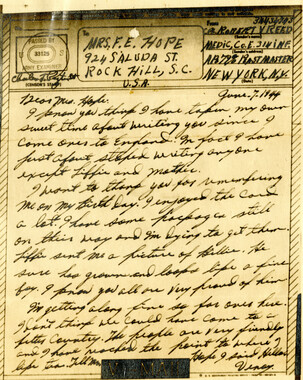 PASSED BY
33125
ARMY EXAMINER
To
MRS. F. E. HOPE
924 SALUDA ST.
ROCK HILL, S.C.
U.S.A.
From
ROBERT V REED
MEDIC, CO. E. 314 INF.
POSTMASTER
NEW YORK, N.Y.
June, 7, 1944
Dear Mrs. Hope:
I know you think I have taken my own
sweet time about writing you since I
came over to England. In fact I have
just about stopped writing anyone
except Effie and Mother.
I want to thank you for remembering
me on my birthday. I enjoyed the card
a lot. I have some packages still
on their way and I'm dying to get them
Effie sent me a picture of Billie. He
sure has grown and looks like a fine
boy. I know you all are very proud of him
I'm getting along fine so far over here.
I don't think we could have come to a
country. The people are very friendly
and I have reached the point to where I
Hope I said Hello